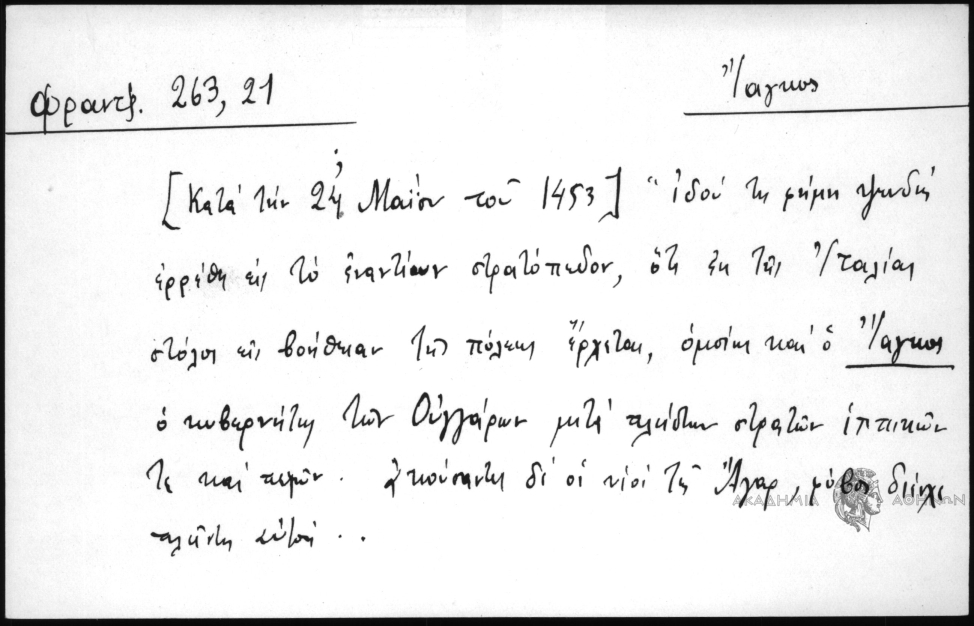 Φραντζ. 263, 21
Ἴαγκος
[Κατά τήν 24 Μαΐου τοῦ 1453] "ἰδού τις φήμη ψευδής
ἐρρέθη εἰς τό ἐναντίων στρατόπεδον, ὅτι ἐκ τῆς Ἰταλίας
στόλος εἰς βοήθειαν τῆς πόλεως ἔρχεται, ὁμοίως καί ὁ Ἴαγκος
ὁ κυβερνήτης τῶν Οὑγγάρων μετά πλείστων στρατῶν ἱππικῶν
τε καί πεζῶν. Ἀκούσαντες δέ οἱ υἱοί τῆς Ἄγαρ, φόβος
πλεῖστος αὐτούς ..
ΑΚΑΔΗΜΙΑ ΑΘΗΝΩΝ